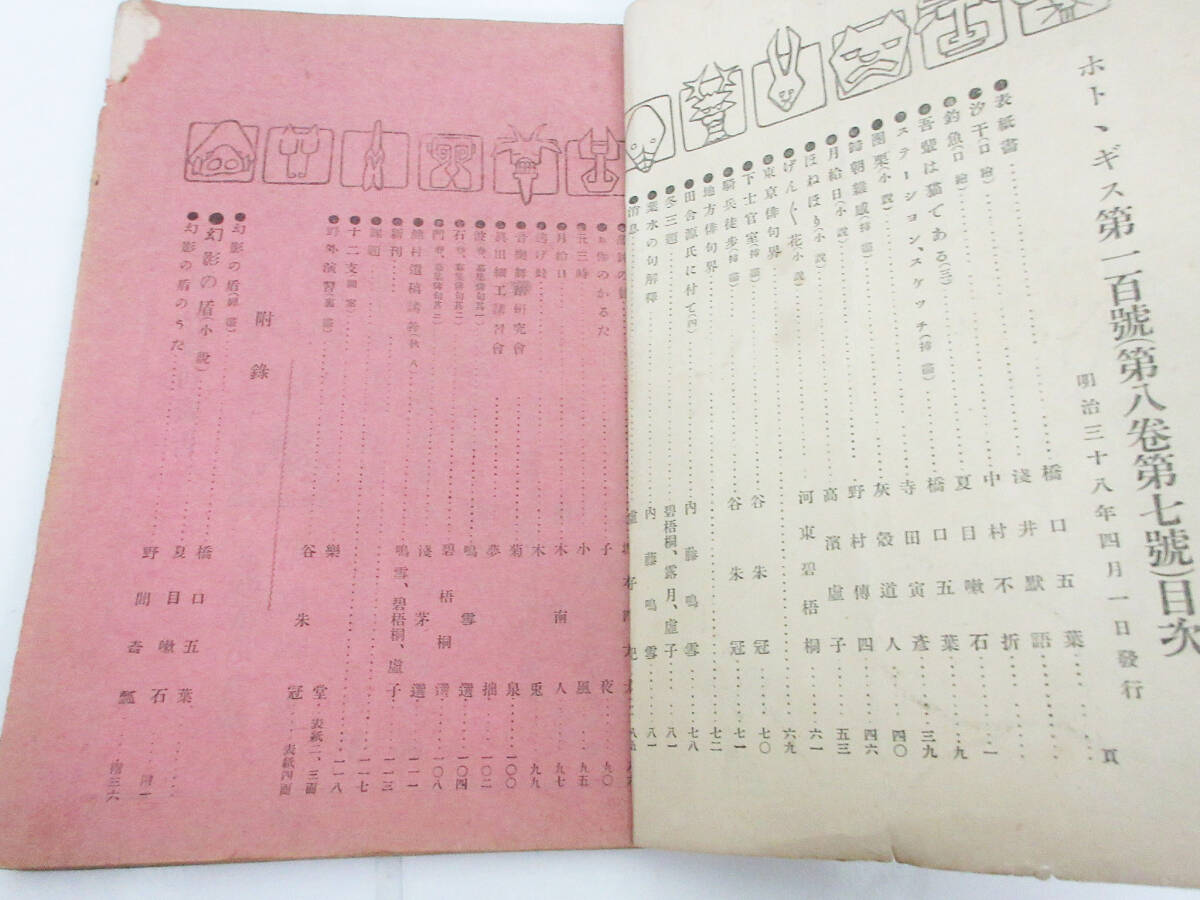 ホトヽギス第一百號(第八卷第七號)目次
明治三十八年四月一日發行
頁
●表紙畫 橋口五葉
●汐干(口繪) 淺井默語
●釣魚(口繪) 中村不折
●吾輩は猫である(三) 夏目嗽石 一
●ステーシヨン、スケツチ(揷畵) 橋口五葉 九
●團栗(小說) 寺田寅彥 三九
●歸朝雜感(揷畵) 灰殼道人 四〇
●月給日(小說) 野村傳四 四六
●ほねほり(小說) 高濱虛子 五三
●げん〲花(小說) 河東碧梧桐 六一
●東京俳句界 六九
●下士官室(揷畵) 谷朱冠 七〇
●騎兵徒步(揷畵) 谷朱冠 七一
●地方俳句界 七二
●田舍源氏に付て(四) 內藤鳴雪 七八
●冬三題 碧梧桐、露月、虛子 八一
葉水の句解釋 內藤鳴雪 八一
●消息
のかるた 子夜 九〇
三時 小風 九五
●月給日 木南人 九七
木兎 九九
研究會 菊泉 一〇〇
眞田細工講習會 夢拙 一〇二
募集俳句其一 鳴雪選 一〇四
募集俳句其二 碧梧桐選 一〇八
遺稿 淺茅選 一一一
●新刊 鳴雪、碧梧桐、虛子 一一三
●課題 一一七
●十二支圖案 一一八
●野外演習(裏畵) 樂堂 表紙二、三面
谷朱冠 表紙四面
附錄
●幻影の盾 橋口五葉
●幻影の盾(小說) 夏目嗽石 附一
●幻影の盾のうた 野間奇瓢 附三六